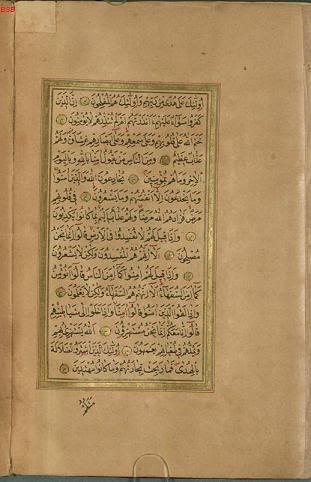 BSB
أولئك على هدى من ربهم وأولئك هم المفلحون إن الذين
كفروا سواء عليهم أأنذرتهم أم لم تنذرهم لا يؤمنون
ختم الله على قلوبهم وعلى سمعهم وعلى أبصارهم غشاوة ولهم
عذاب عظيم ومن الناس من يقول آمنا بالله وباليوم
الآخر وما هم بمؤمنين يخادعون الله والذين آمنوا
وما يخدعون إلا أنفسهم وما يشعرون في قلوبهم
مرض فزادهم الله مرضا ولهم عذاب أليم بما كانوا يكذبون
وإذا قيل لهم لا تفسدوا في الأرض قالوا إنما نحن
مصلحون ألا إنهم هم المفسدون ولكن لا يشعرون
وإذا قيل لهم آمنوا كما آمن الناس قالوا أنؤمن
كما آمن السفهاء ألا إنهم هم السفهاء ولكن لا يعلمون
وإذا لقوا الذين آمنوا قالوا آمنا وإذا خلوا إلى شياطينهم
قالوا إنا معكم إنما نحن مستهزؤن الله يستهزئ بهم
ويمدهم في طغيانهم يعمهون أولئك الذين اشتروا الضلالة
بالهدى فما ربحت تجارتهم وما كانوا مهتدين
مثلهم